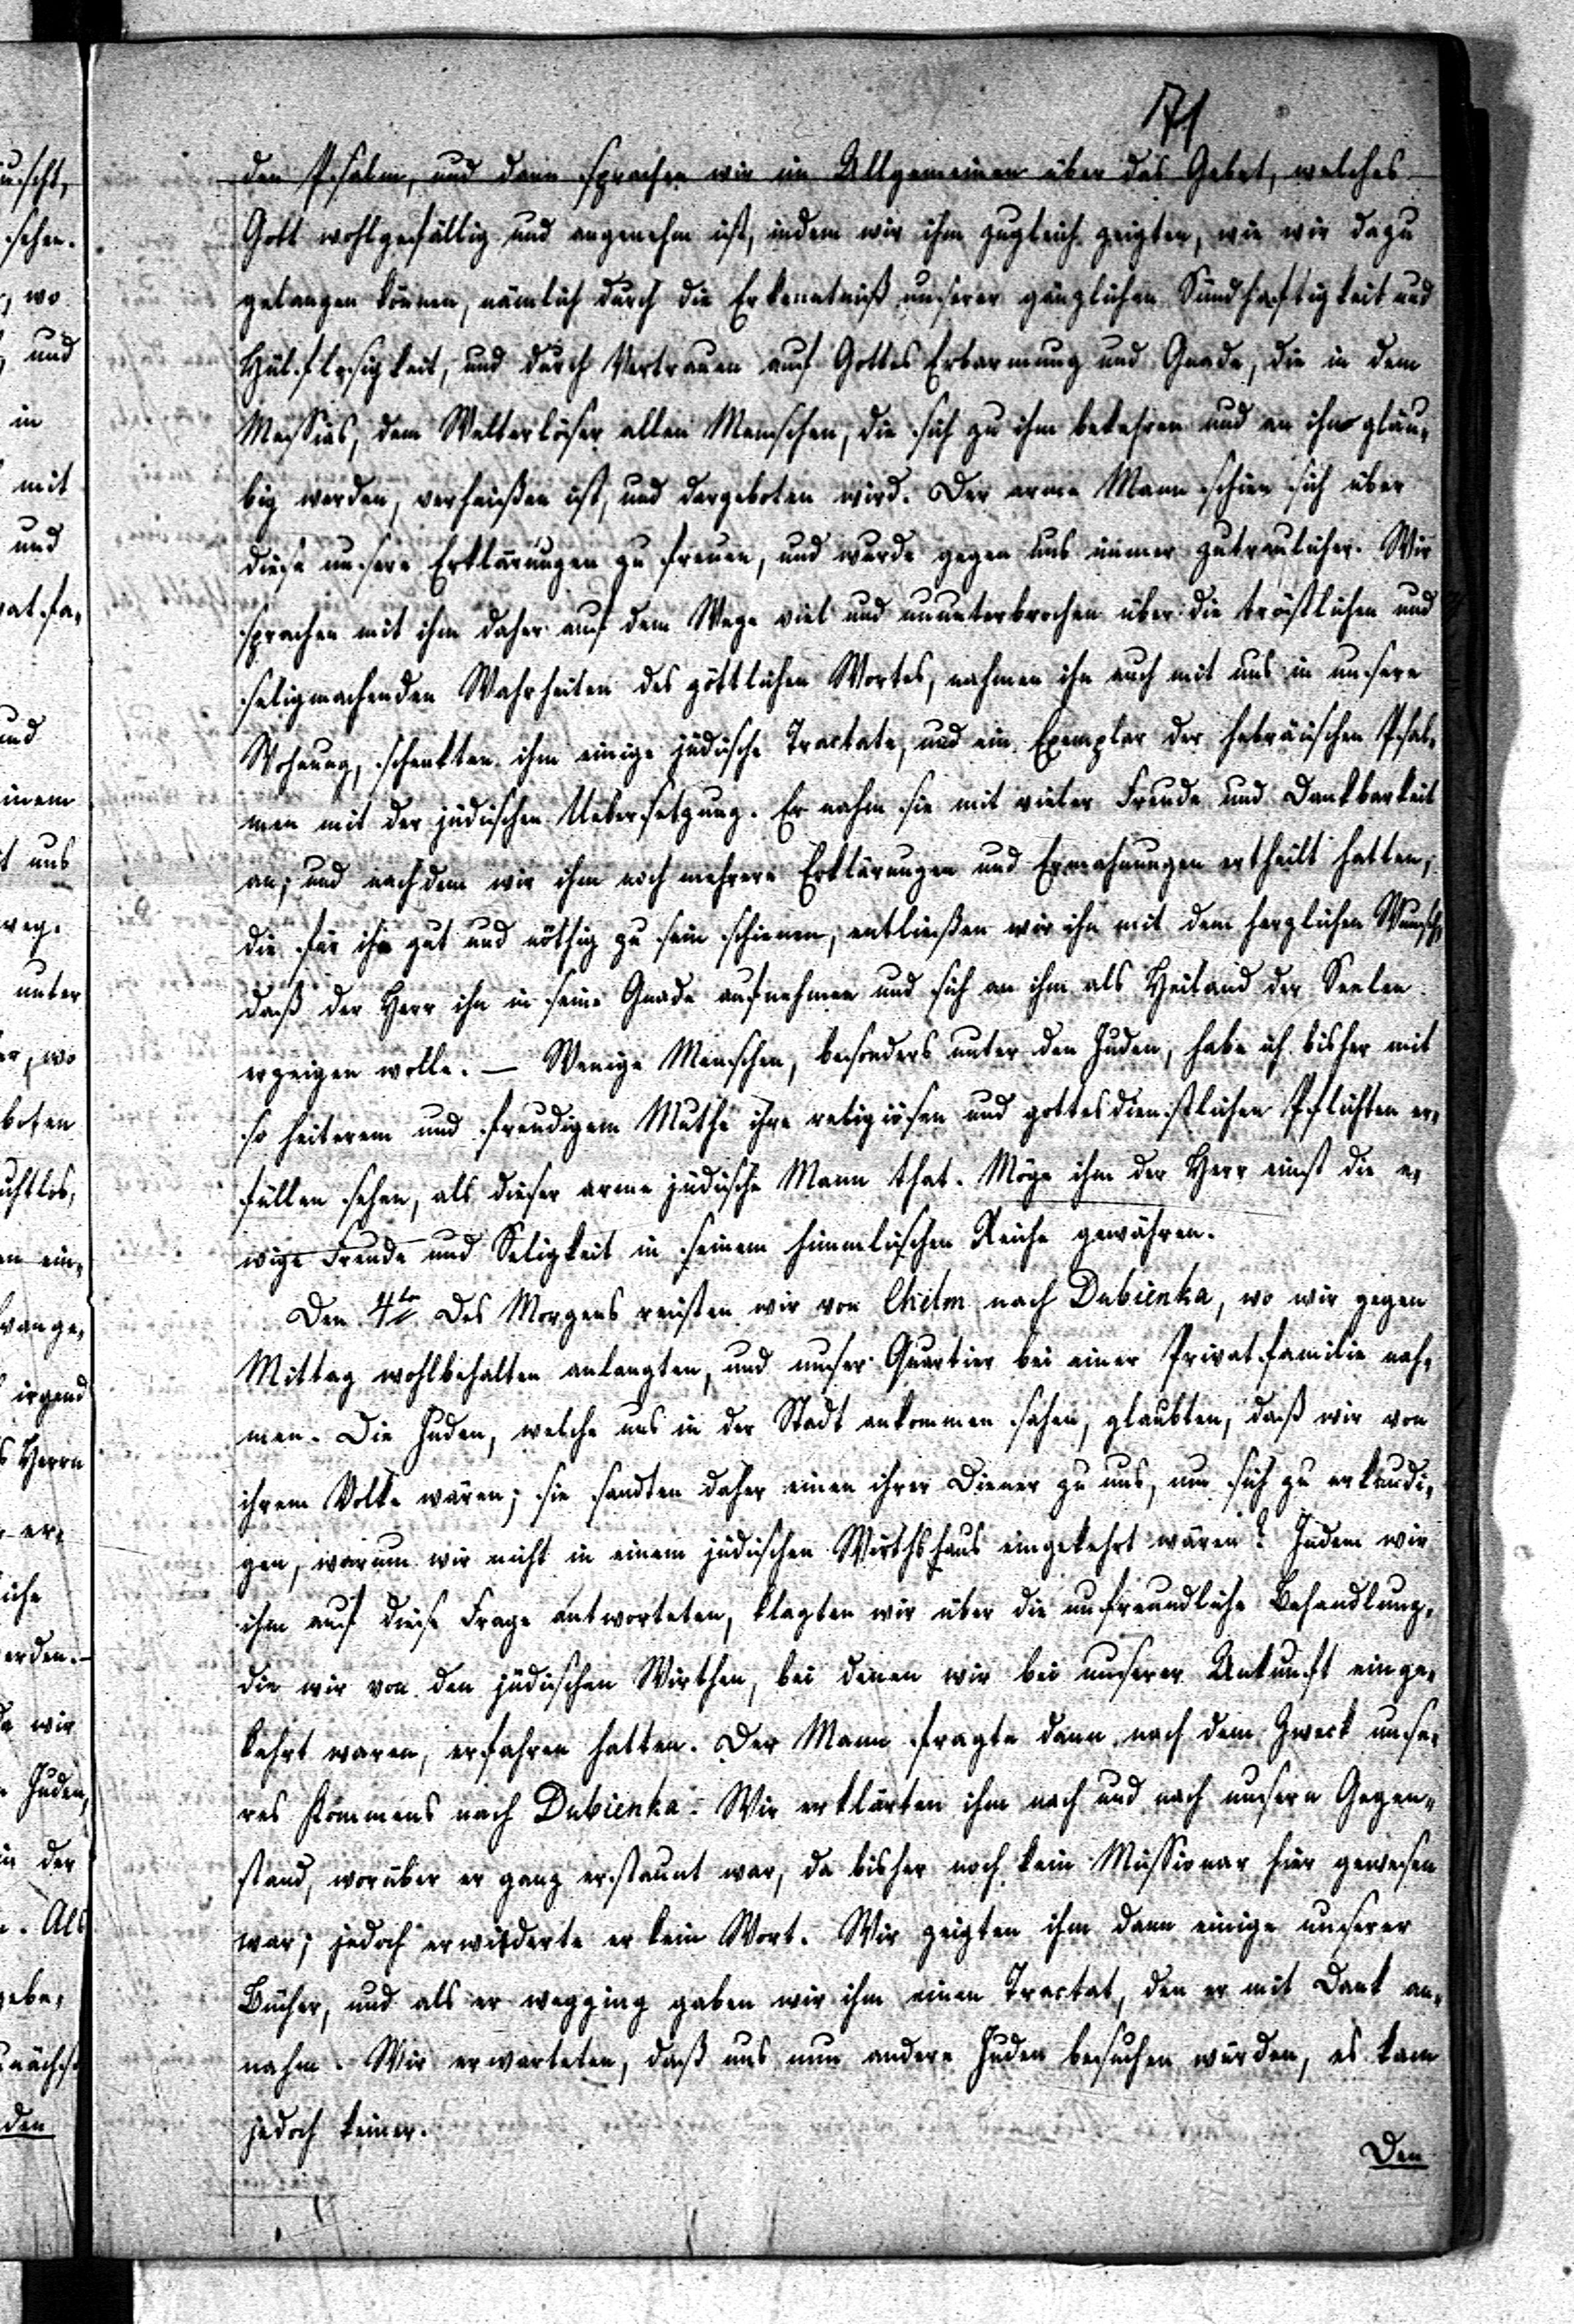 71
den Psalm, und dann sprachen wir im Allgemeinen über das Gebet, welches
Gott wohlgefällig und angenehm ist, indem wir ihm zugleich zeigten, wie wir dazu
gelangen können, nämlich durch die Erkenntniß unserer gänzlichen Sündhaftigkeit und
Hülflosigkeit, und durch Vertrauen auf Gottes Erbarmung und Gnade, die in dem
Messias, dem Welterlöser allen Menschen, die sich zu ihm bekehren und an ihn gläu-
big werden, verheißen ist, und dargeboten wird. Der arme Mann schien sich über
diese unsere Erklärungen zu freuen, und wurde gegen uns immer zutraulicher. Wir
sprachen mit ihm daher auf dem Wege viel und ununterbrochen über die tröstlichen und
seligmachenden Wahrheiten des göttlichen Wortes, nahmen ihn auch mit uns in unsere
Wohnung, schenkten ihm einige jüdische Tractate, und ein Exemplar der hebräischen Psal-
men mit der jüdischen Uebersetzung. Er nahm sie mit vieler Freude und Dankbarkeit
an; und nachdem wir ihm noch mehrere Erklärungen und Ermahnungen ertheilt hatten,
die für ihn gut und nöthig zu sein schienen, entließen wir ihn mit dem herzlichen Wunsch,
daß der Herr ihn in seine Gnade aufnehmen und sich an ihm als Heiland der Seelen
erzeigen wolle. — Wenige Menschen, besonders unter den Juden, habe ich bisher mit
so heiterem und freudigem Muthe ihre religiösen und gottesdienstlichen Pflichten er-
füllen sehen, als dieser arme jüdische Mann that. Möge ihm der Herr einst die e-
wige Freude und Seligkeit in seinem himmlischen Reiche gewähren.
Den 4ten Des Morgens reisten wir von Chelm nach Dubienka, wo wir gegen
Mittag wohlbehalten anlangten, und unser Quartier bei einer Privatfamilie nah-
men. Die Juden, welche uns in der Stadt ankommen sahen, glaubten, daß wir von
ihrem Volke wären; sie sandten daher einen ihrer Diener zu uns, um sich zu erkundi-
gen, warum wir nicht in einem jüdischen Wirthshaus eingekehrt wären? Indem wir
ihm auf diese Frage antworteten, klagten wir über die unfreundliche Behandlung,
die wir von den jüdischen Wirthen, bei denen wir bei unserer Ankunft einge-
kehrt waren, erfahren hatten. Der Mann fragte dann nach dem Zweck unse-
res Kommens nach Dubienka. Wir erklärten ihm nach und nach unsern Gegen-
stand, worüber er ganz erstaunt war, da bisher noch kein Missionar hier gewesen
war; jedoch erwiederte er kein Wort. Wir zeigten ihm dann einige unserer
Bücher, und als er wegging gaben wir ihm einen Tractat, den er mit Dank an-
nahm. Wir erwarteten, daß uns nun andere Juden besuchen würden, es kam
jedoch keiner.
Den